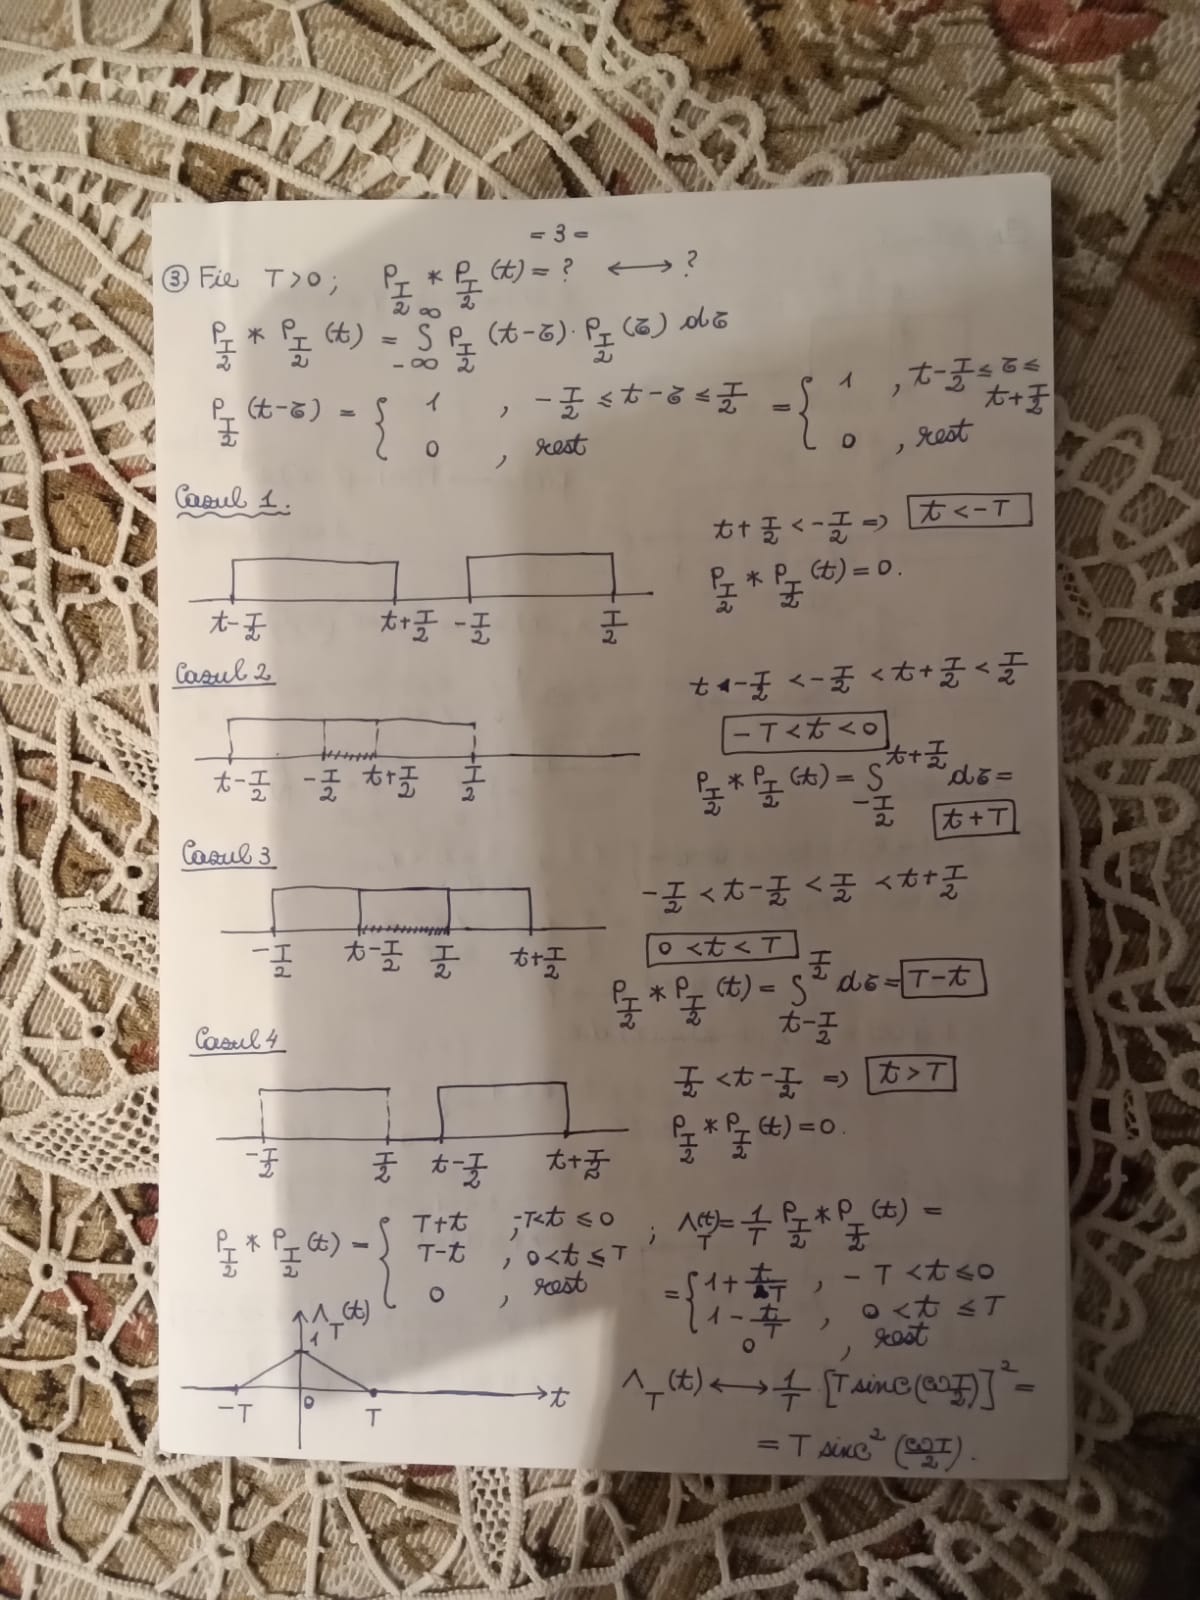 = 3 =
③ Fie T > 0 ; p_{T/2} * p_{T/2}(t) = ? ⟷ ?
p_{T/2} * p_{T/2}(t) = ∫_{-∞}^{∞} p_{T/2}(t-τ) · p_{T/2}(τ) dτ
p_{T/2}(t-τ) = { 1 , -T/2 ≤ t-τ ≤ T/2 = { 1 , t-T/2 ≤ τ ≤ t+T/2
0 , rest 0 , rest
Cazul 1.
t + T/2 < -T/2 => t < -T
p_{T/2} * p_{T/2}(t) = 0.
t-T/2 t+T/2 -T/2 T/2
Cazul 2
t - T/2 < -T/2 < t + T/2 < T/2
-T < t < 0
t-T/2 -T/2 t+T/2 T/2
p_{T/2} * p_{T/2}(t) = ∫_{-T/2}^{t+T/2} dτ =
t + T
Cazul 3
-T/2 < t - T/2 < T/2 < t + T/2
0 < t < T
-T/2 t-T/2 T/2 t+T/2
p_{T/2} * p_{T/2}(t) = ∫_{t-T/2}^{T/2} dτ = T-t
Cazul 4
T/2 < t - T/2 => t > T
p_{T/2} * p_{T/2}(t) = 0.
-T/2 T/2 t-T/2 t+T/2
p_{T/2} * p_{T/2}(t) = { T+t , -T< t ≤ 0
T-t , 0 < t ≤ T
0 , rest
; Λ_T(t) = 1/T p_{T/2} * p_{T/2}(t) =
= { 1 + t/T , -T < t ≤ 0
1 - t/T , 0 < t ≤ T
0 , rest
Λ_T(t)
1
-T 0 T t
Λ_T(t) ⟷ 1/T · [T sinc(ωT/2)]² =
= T sinc² (ωT/2).